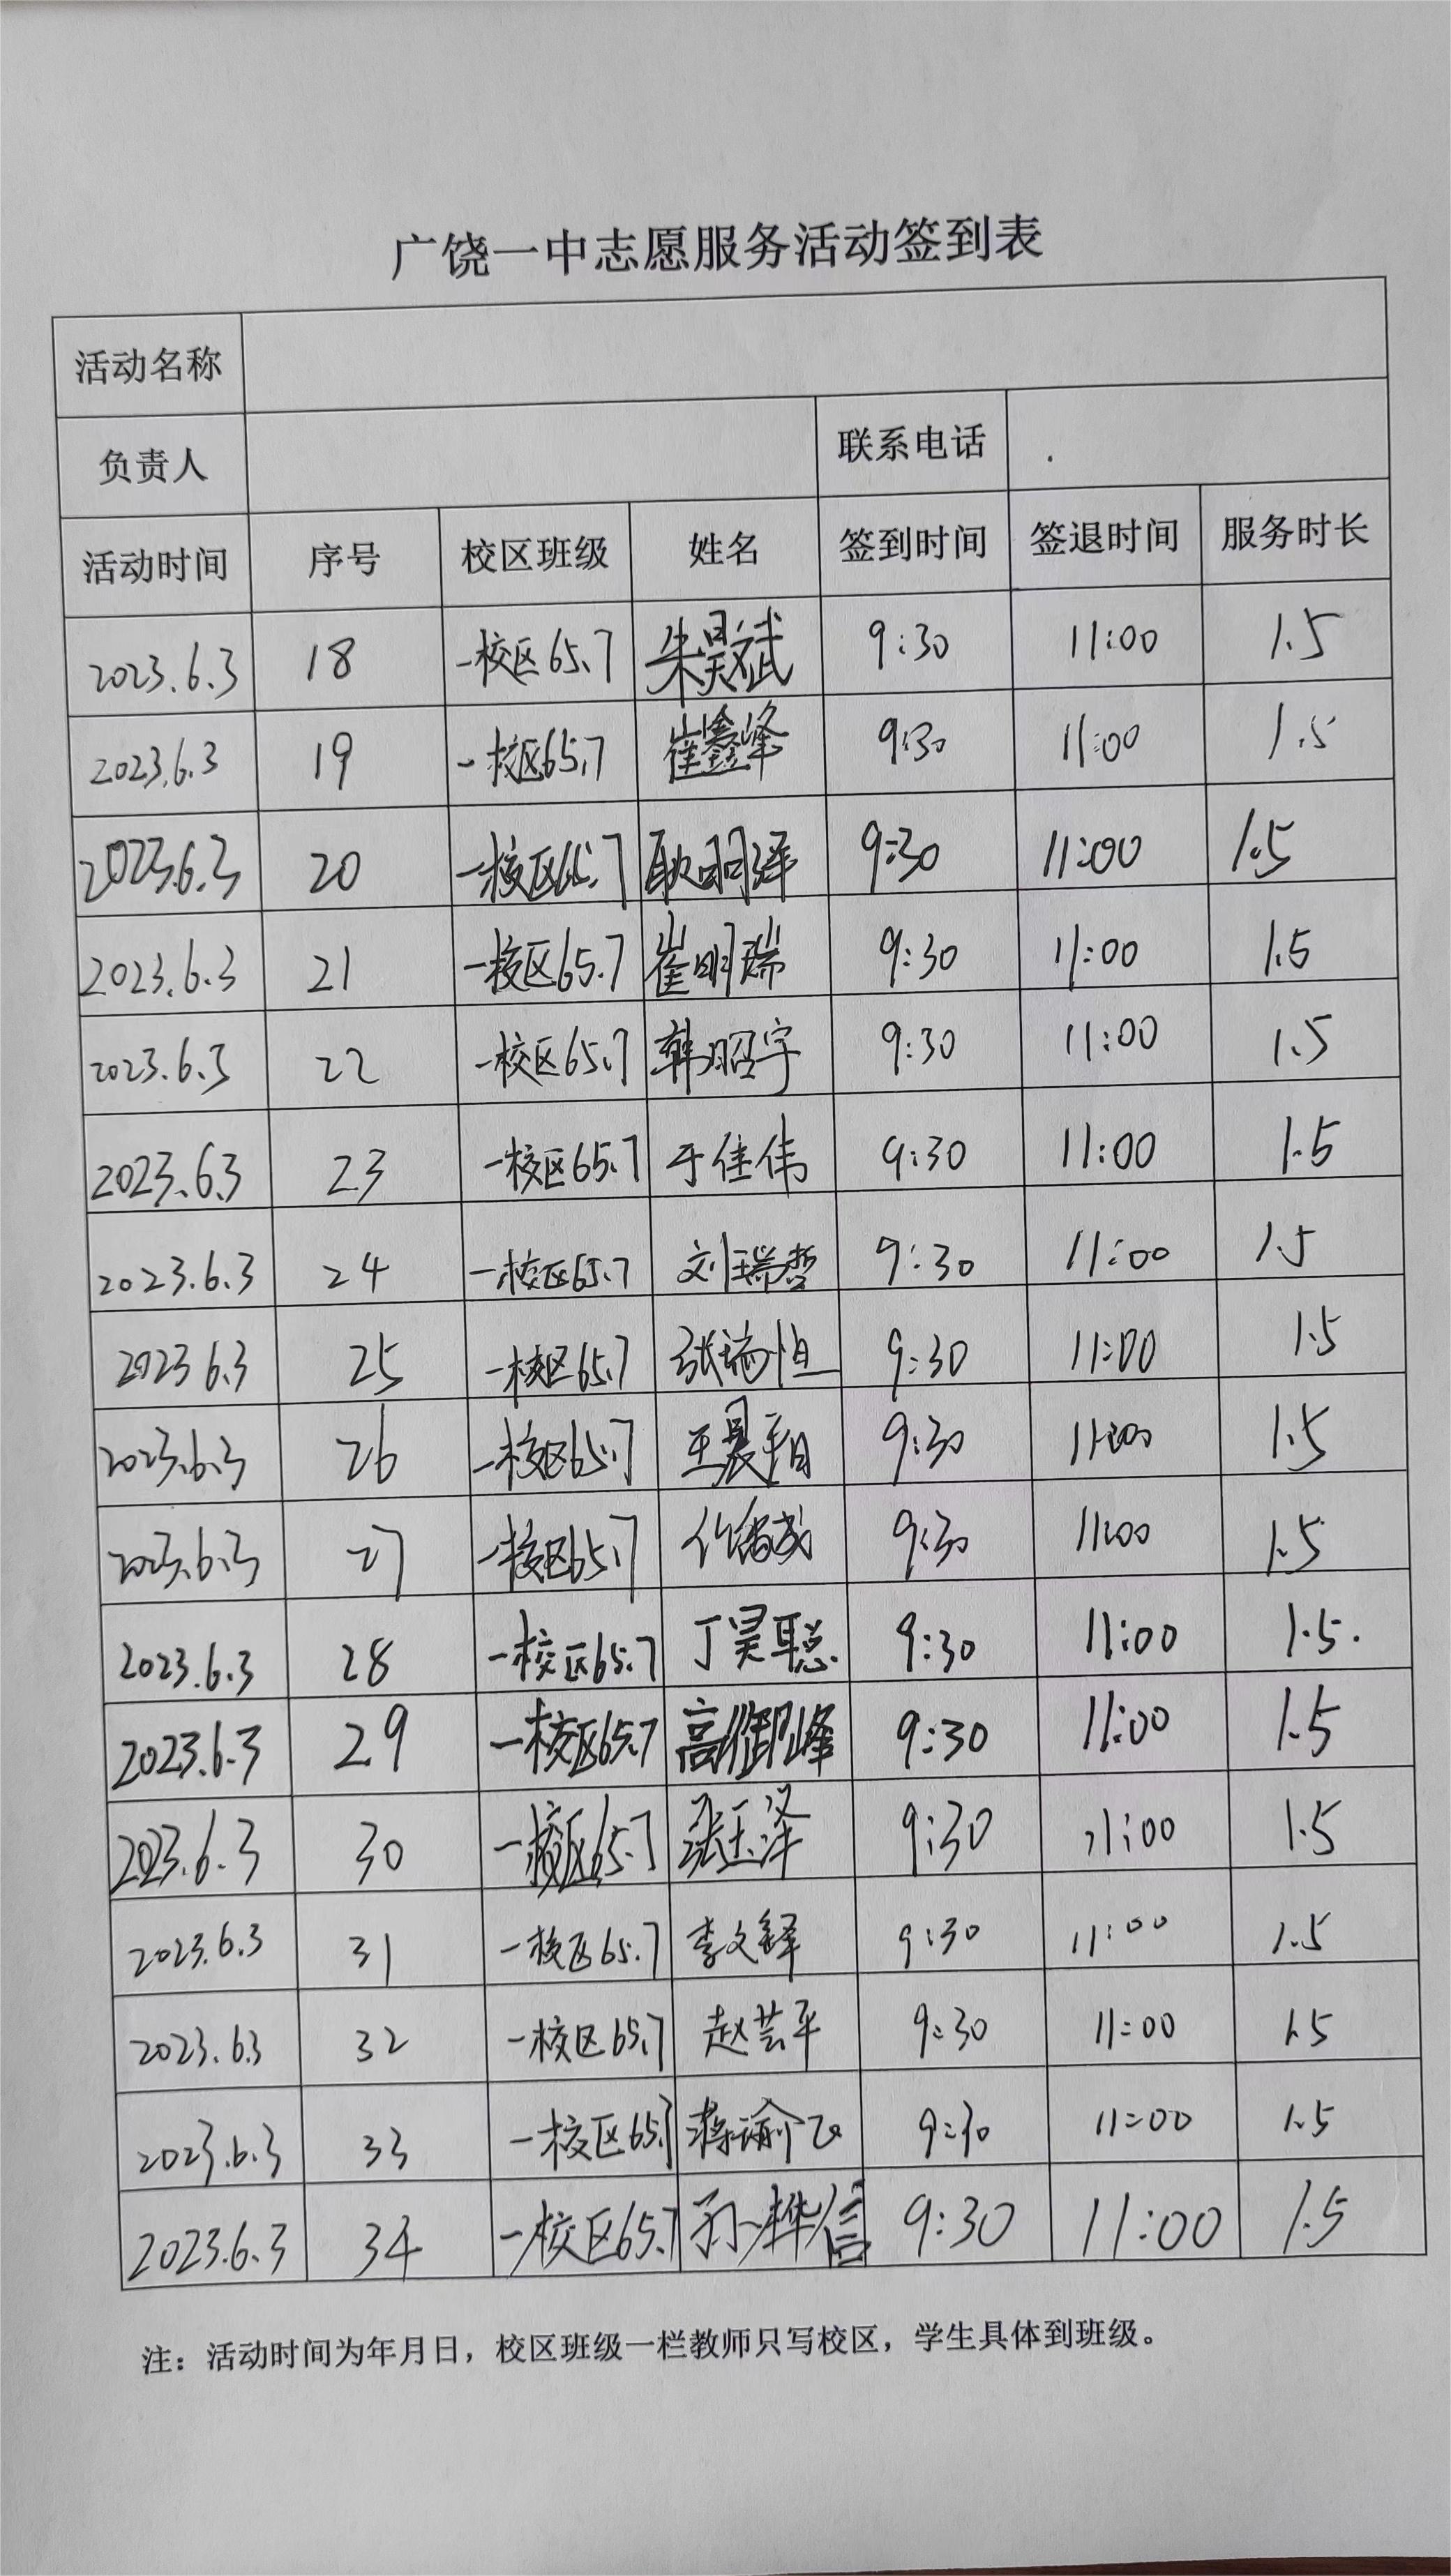 广饶一中志愿服务活动签到表
活动名称
负责人 联系电话
活动时间 序号 校区班级 姓名 签到时间 签退时间 服务时长
2023.6.3 18 一校区65.7 朱昊斌 9:30 11:00 1.5
2023.6.3 19 一校区65.7 崔鑫峰 9:30 11:00 1.5
2023.6.3 20 一校区65.7 耿明泽 9:30 11:00 1.5
2023.6.3 21 一校区65.7 崔明瑞 9:30 11:00 1.5
2023.6.3 22 一校区65.7 韩昭宇 9:30 11:00 1.5
2023.6.3 23 一校区65.7 于佳伟 9:30 11:00 1.5
2023.6.3 24 一校区65.7 刘瑞哲 9:30 11:00 1.5
2023 6.3 25 一校区65.7 张瑞恒 9:30 11:00 1.5
2023.6.3 26 一校区65.7 9:30 11:00 1.5
2023.6.3 27 一校区65.7 9:30 11:00 1.5
2023.6.3 28 一校区65.7 丁昊聪 9:30 11:00 1.5.
2023.6.3 29 一校区65.7 高御峰 9:30 11:00 1.5
2023.6.3 30 一校区65.7 张玉泽 9:30 11:00 1.5
2023.6.3 31 一校区65.7 李文铎 9:30 11:00 1.5
2023.6.3 32 一校区65.7 赵芸平 9:30 11:00 1.5
2023.6.3 33 一校区65.7 9:30 11:00 1.5
2023.6.3 34 一校区65.7 孙桦信 9:30 11:00 1.5
注：活动时间为年月日，校区班级一栏教师只写校区，学生具体到班级。